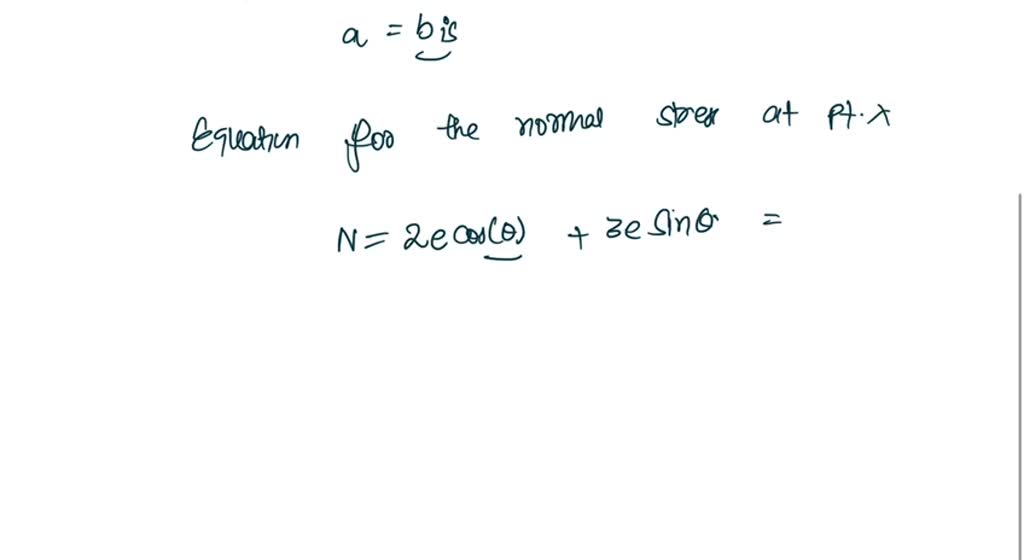 a = b is
Equation for the normal stress at pt. x
N = 2e cos(θ) + 3e sinθ =